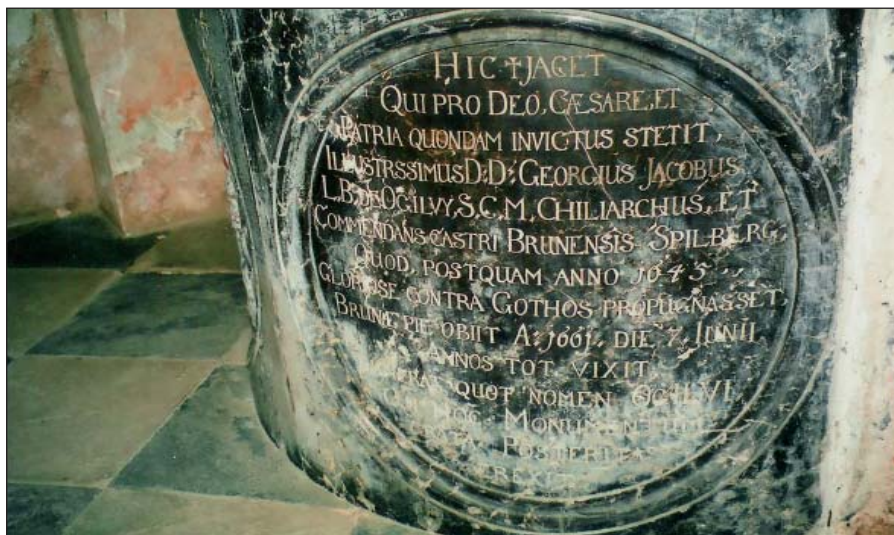 HIC † JACET
QUI PRO DEO, CÆSARE, ET
PATRIA QUONDAM INVICTUS STETIT,
ILLUSTRSSIMUS D: D: GEORGIUS JACOBUS
L. B. DE OGILVY, S. C. M. CHILIARCHUS, ET
COMMENDANS CASTRI BRUNENSIS SPILBERG,
QUOD, POSTQUAM ANNO 1645
GLORIOSE CONTRA GOTHOS PROPUGNASSET,
BRUNÆ PIE OBIIT A: 1661. DIE 7 IUNII
ANNOS TOT VIXIT
QUOT NOMEN OGILVI
HOC MONUMENTUM
POSTERITAS